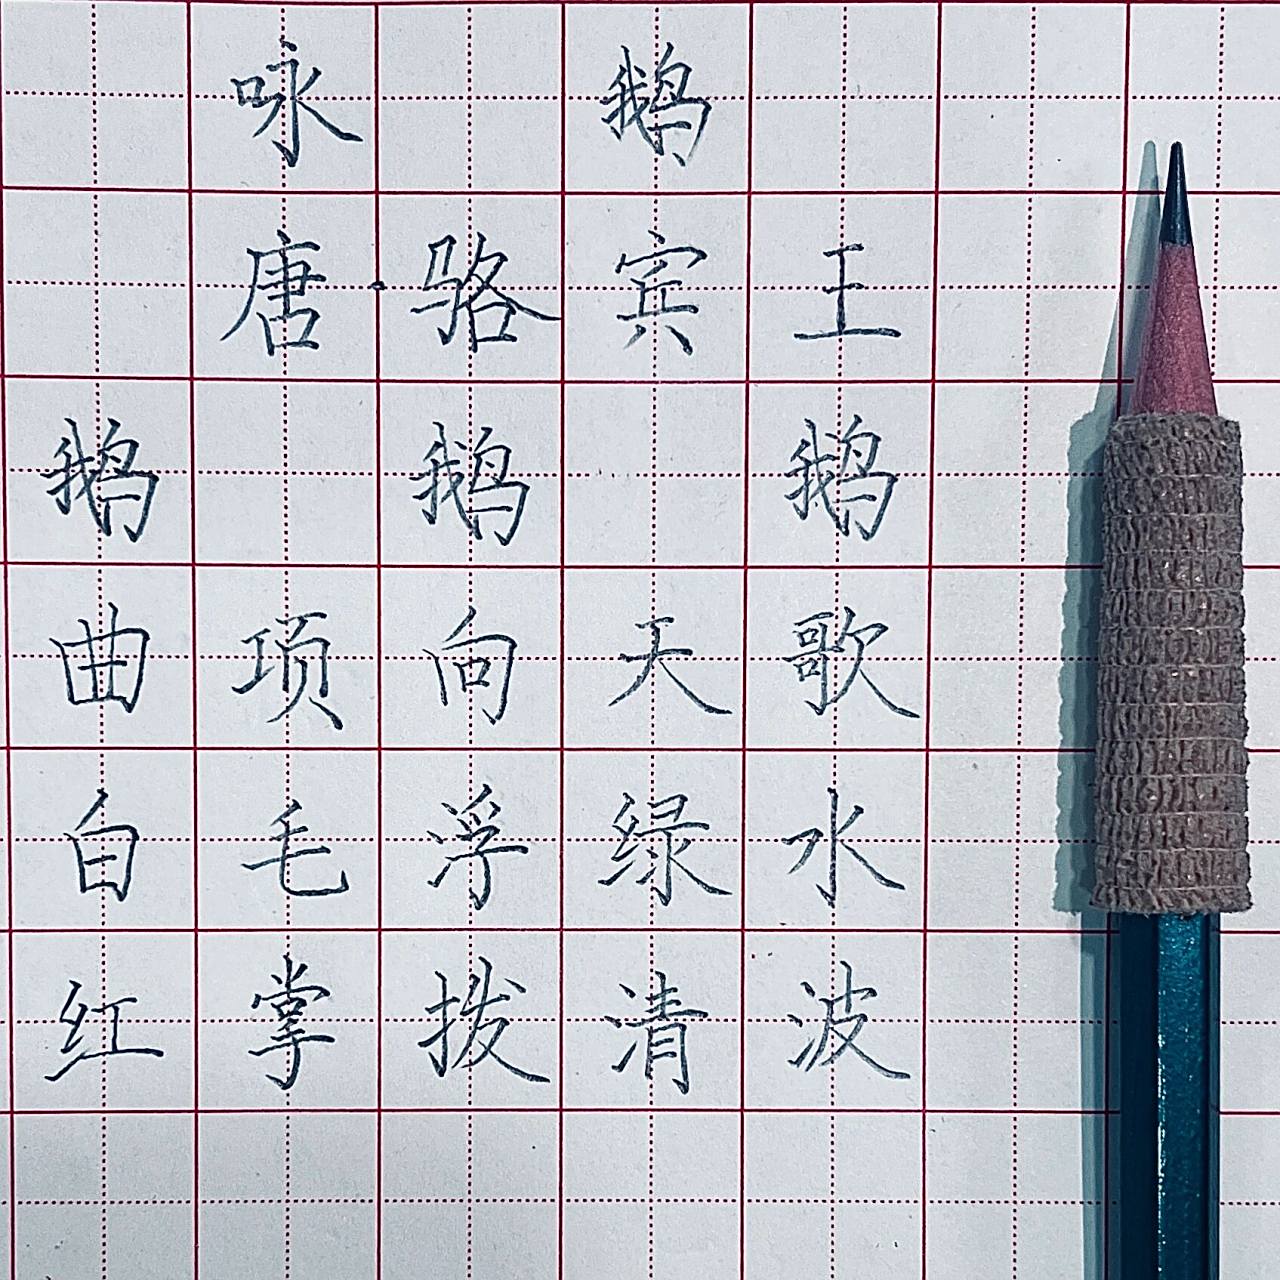 咏鹅
唐·骆宾王
鹅 鹅 鹅
曲项向天歌
白毛浮绿水
红掌拨清波